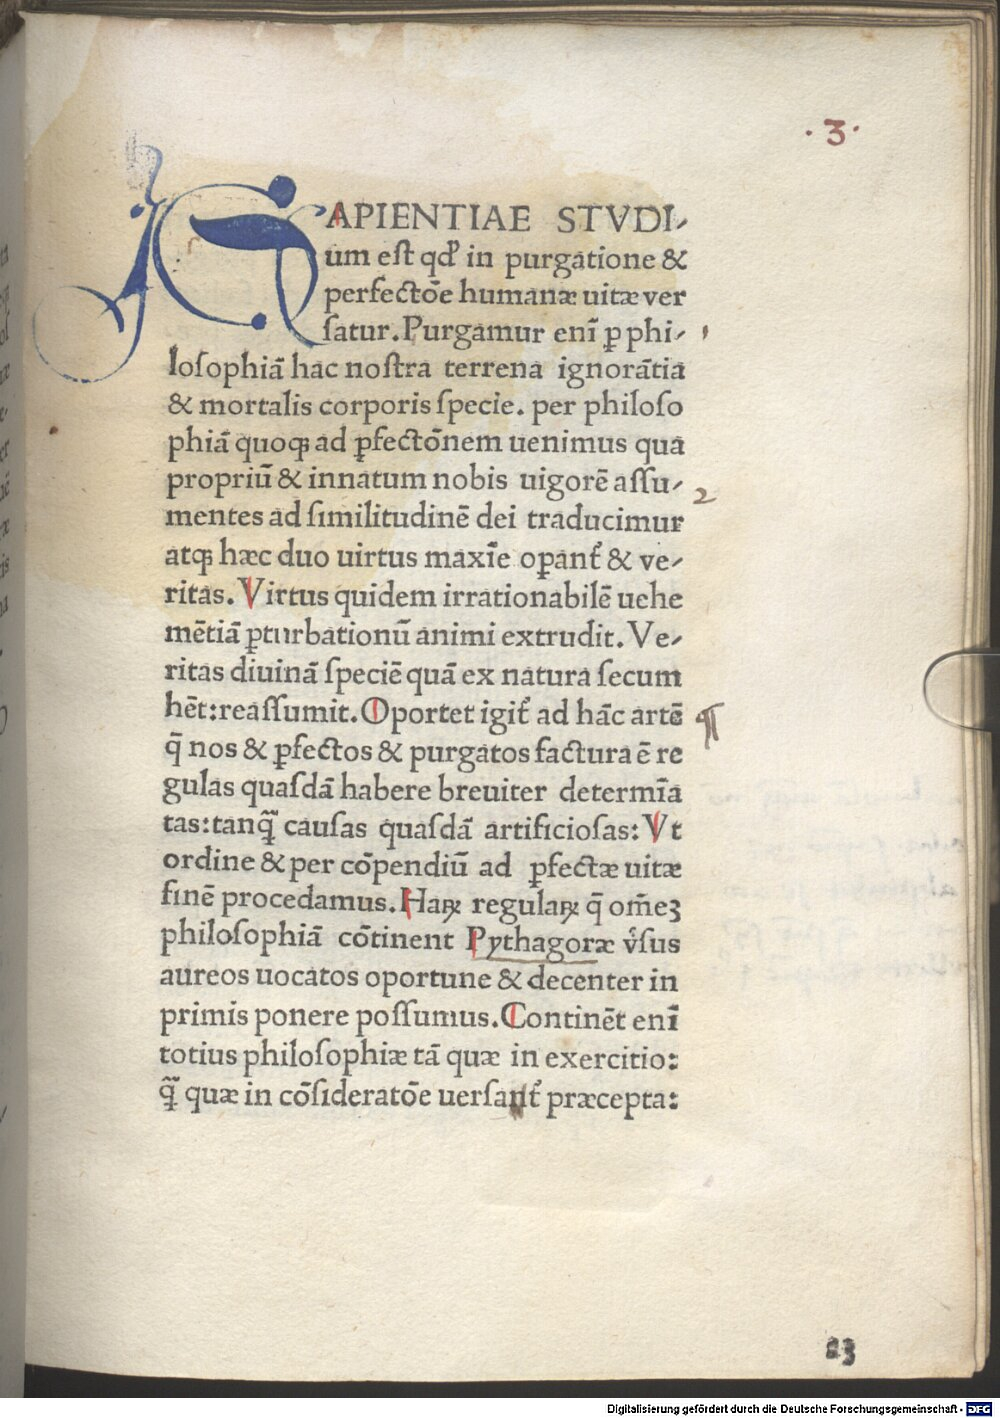 · 3 ·
SAPIENTIAE STVDI-
um est qđ in purgatione &
perfectōe humanæ uitæ ver
ſatur. Purgamur enī ꝑ phi-
loſophiā hac noſtra terrena ignorātia
& mortalis corporis ſpecie. per philoſo
phiā quoqꝫ ad ꝑfectōnem uenimus qua
propriū & innatum nobis uigorē aſſu-
mentes ad ſimilitudinē dei traducimur
atqꝫ hæc duo uirtus maxīe oꝑant᷑ & ve-
ritas. Virtus quidem irrationabilē uehe
mētiā ꝑturbationū animi extrudit. Ve-
ritas diuinā ſpeciē quā ex natura ſecum
hēt: reaſſumit. Oportet igit᷑ ad hāc artē
q̄ nos & ꝑfectos & purgatos factura ē re
gulas quaſdā habere breuiter determīa
tas: tanq̃ cauſas quaſdā artificioſas: Vt
ordine & per cōpendiū ad ꝑfectæ uitæ
finē procedamus. Haꝝ regulaꝝ q̄ om̄eꝫ
philoſophiā cōtinent Pythagoræ v̓ſus
aureos uocatos oportune & decenter in
primis ponere poſſumus. Continēt enī
totius philoſophiæ tā quæ in exercitio:
q̃ quæ in cōſideratōe uerſant᷑ præcepta:
2
¶
23
Digitalisierung gefördert durch die Deutsche Forschungsgemeinschaft - DFG